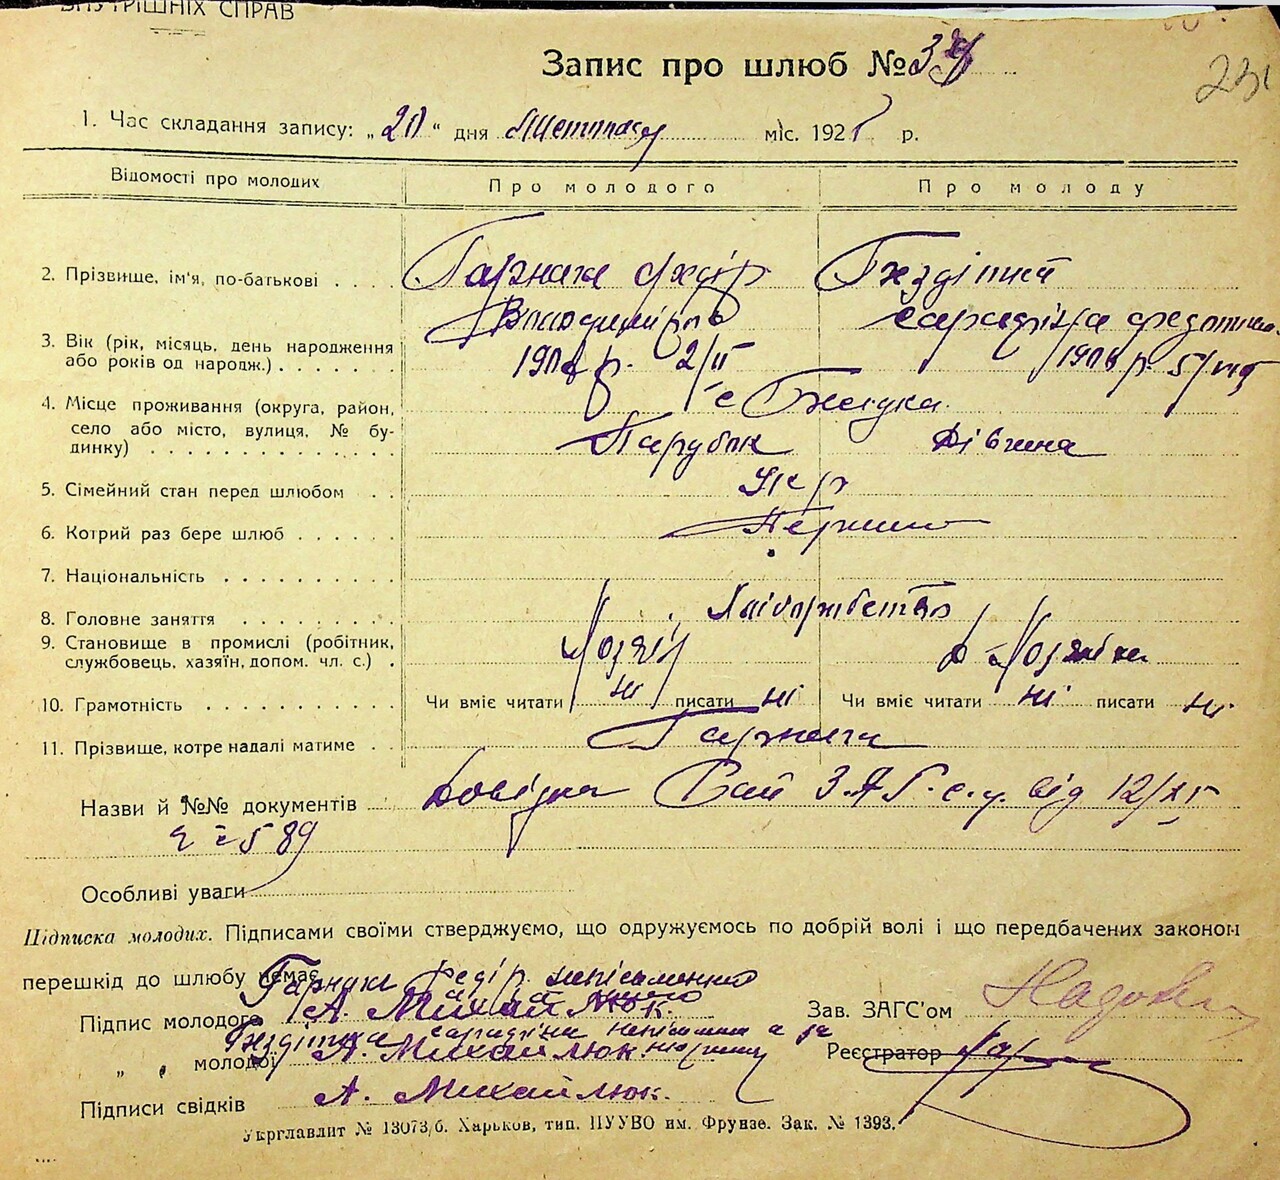 ВНУТРІШНІХ СПРАВ
Запис про шлюб №
231
1. Час складання запису: „20“ дня Листопаду міс. 1925 р.
Відомості про молодих
Про молодого
Про молоду
2. Прізвище, ім'я, по-батькові
Гарнага Федір
Володимиров
3. Вік (рік, місяць, день народження або років од народж.)
190 р. 2/II
190 р. 5/VIII
4. Місце проживання (округа, район, село або місто, вулиця, № будинку)
с
Парубок
Дівчина
5. Сімейний стан перед шлюбом
Укр
6. Котрий раз бере шлюб
Перший
7. Національність
8. Головне заняття
Хліборобство
9. Становище в промислі (робітник, службовець, хазяїн, допом. чл. с.)
Хозяїн
Хозяйка
10. Грамотність
Чи вміє читати ні писати ні
Чи вміє читати ні писати ні
11. Прізвище, котре надалі матиме
Гарнага
Назви й №№ документів Довідка Рай З.А.Г.С.у. від 12/XI
589
Особливі уваги
Підписка молодих. Підписами своїми стверджуємо, що одружуємось по добрій волі і що передбачених законом
перешкід до шлюбу немає
Гарнага Федір
Підпис молодого А. Михайлюк.
„ „ молодої А. Михайлюк
Підписи свідків А. Михайлюк.
Зав. ЗАГС'ом
Реєстратор
Укрглавлит № 13073/б. Харьков, тип. ПУУВО им. Фрунзе. Зак. № 1393.